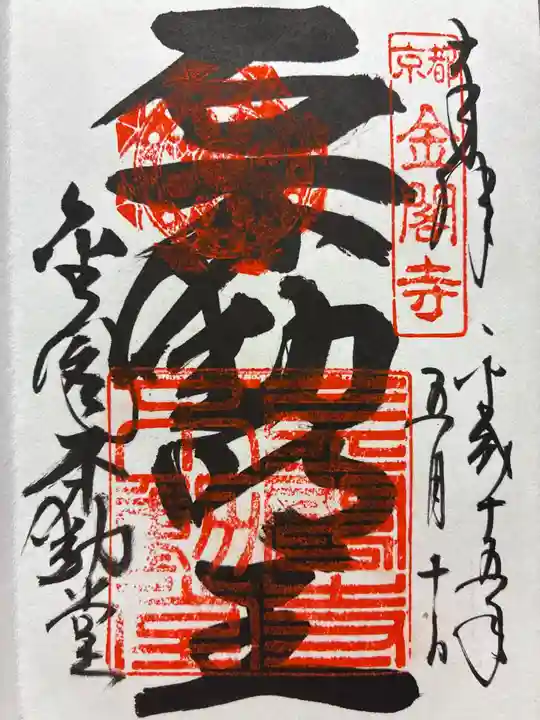 奉拝
京都
金閣寺
平成十五年
五月十日
石不動明王
金閣不動堂